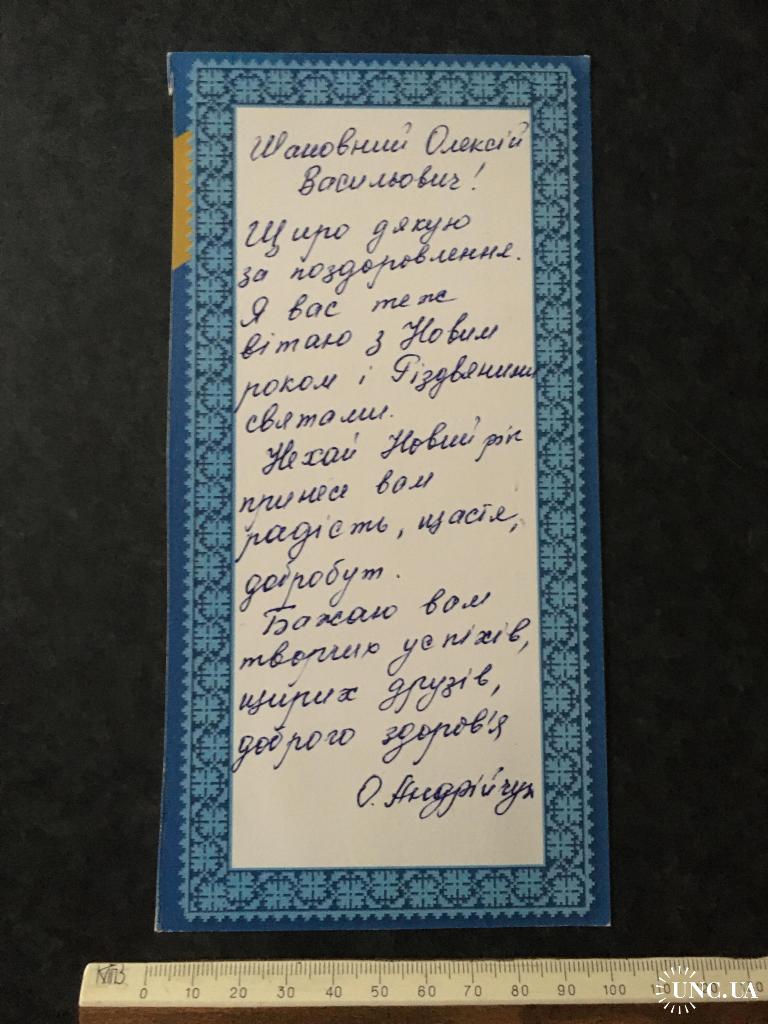 Шановний Олексій
Васильович!
Щиро дякую
за поздоровлення.
Я вас теж
вітаю з Новим
роком і Різдвяними
святами.
Нехай Новий рік
принесе вам
радість, щастя,
добробут.
Бажаю вам
творчих успіхів,
щирих друзів,
доброго здоров'я
О. Андрійчук
0 10 20 30 40 50 60 70 80 90 100 110
UNC.UA